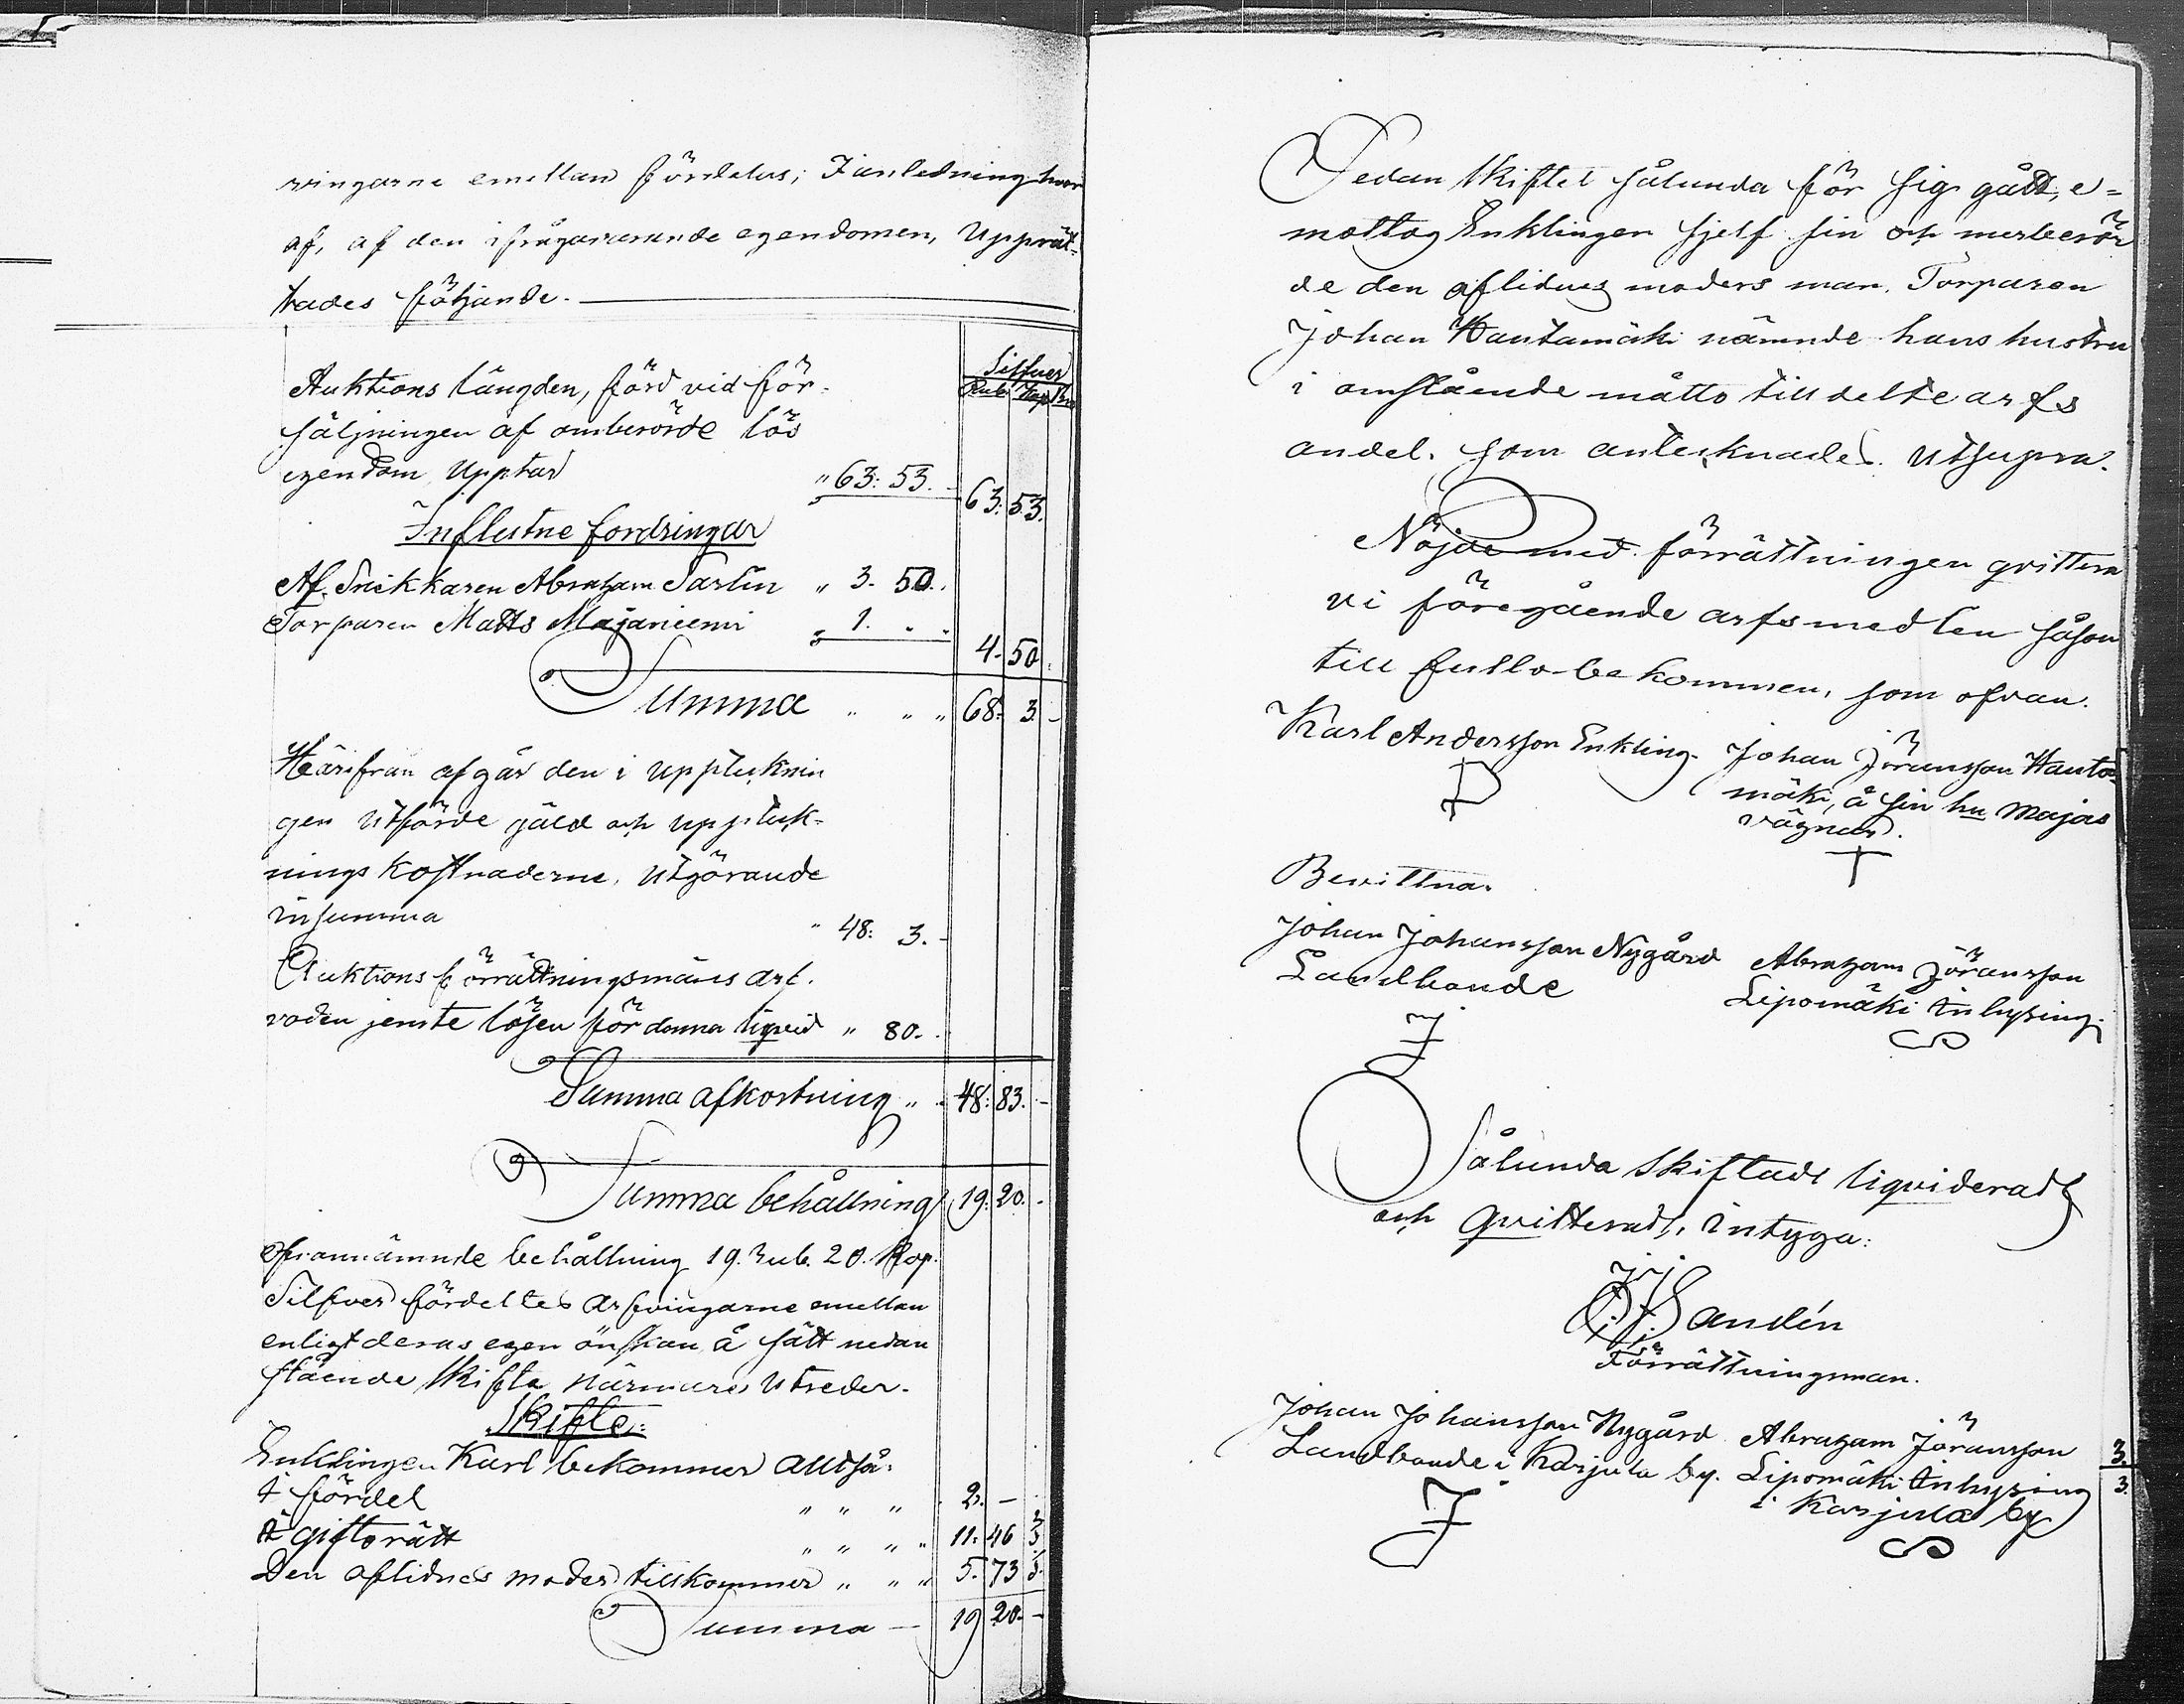 vingarne emellan fördelas; I anledning hvar
af, af den ifrågavarande egendomen, upprät-
tades följande.
Silfver
Rub. Kop.
Auktions längden, förd vid för-
säljningen af omberörde lös
egendom upptar " 63: 53. 63: 53.
Influtne fordringar
Af Snikkaren Abraham Sarlin " 3. 50.
Torparen Matts Majaniemi " 1. " " 4. 50.
Summa " " " 68: 3. -
Härifrån afgår den i upptecknin
gen utförde gäld och uppteck-
nings kostnaderne, utgörande
in summa " 48: 3. -
Auktions förrättningsmäns arf-
voden jemte lösen för denna liqvid " 80.
Summa afkortning " 48: 83. -
Summa behållning 19: 20. -
Ofvannämnde behållning 19. Rub. 20. Kop.
Silfver fördeltes arfvingarne emellan
enligt deras egen önskan å sätt nedan
stående skifte närmare utreder.
Skifte:
Enklingen Karl bekommer alltså:
i fördel " " " 2. -
i giftorätt " " " " 11: 46
Den aflidnes moder tillkommer " " " 5. 73
Summa - 19 20. -
Sedan skiftet sålunda för sig gått, e-
mottog Enklingen sjelf sin och merberör
de den aflidnes moders man, Torparen
Johan Hautamäki nämnde hans hustru
i omstående måtto till delte arfs
andel. som antecknades. Utsupra.
Nöjde med förrättningen qvittera
vi föregående arfsmedlen såsom
till fullo bekommen, som ofvan.
Karl Andersson Enkling. Johan Jöransson Hauta-
mäki, å sin hu Majas
vägnar.
Bevittna.
Johan Johansson Nygård Abraham Jöransson
Landbonde Lipomäki Inhysing.
Sålunda skiftadt liqvideradt
och qvitteradt, intyga:
Sandén
Förrättningsman.
Johan Johansson Nygård Abraham Jöransson
Landbonde i Karjula by. Lipomäki Inhysing
i Karjula by
3.
3.